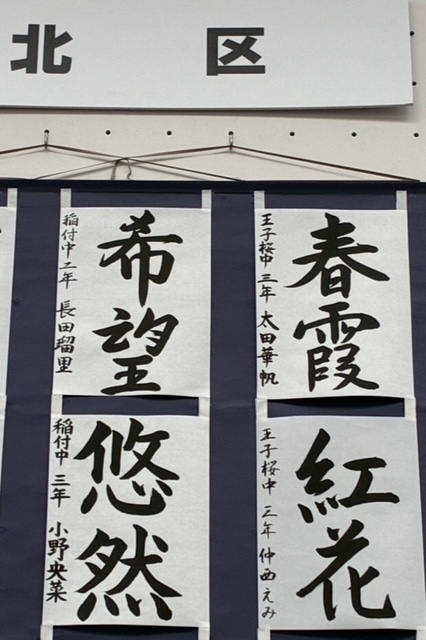 北区
春霞
王子桜中 三年 太田華帆
希望
稲付中二年 長田瑠里
紅花
王子桜中 三年 仲西えみ
悠然
稲付中 三年 小野央菜